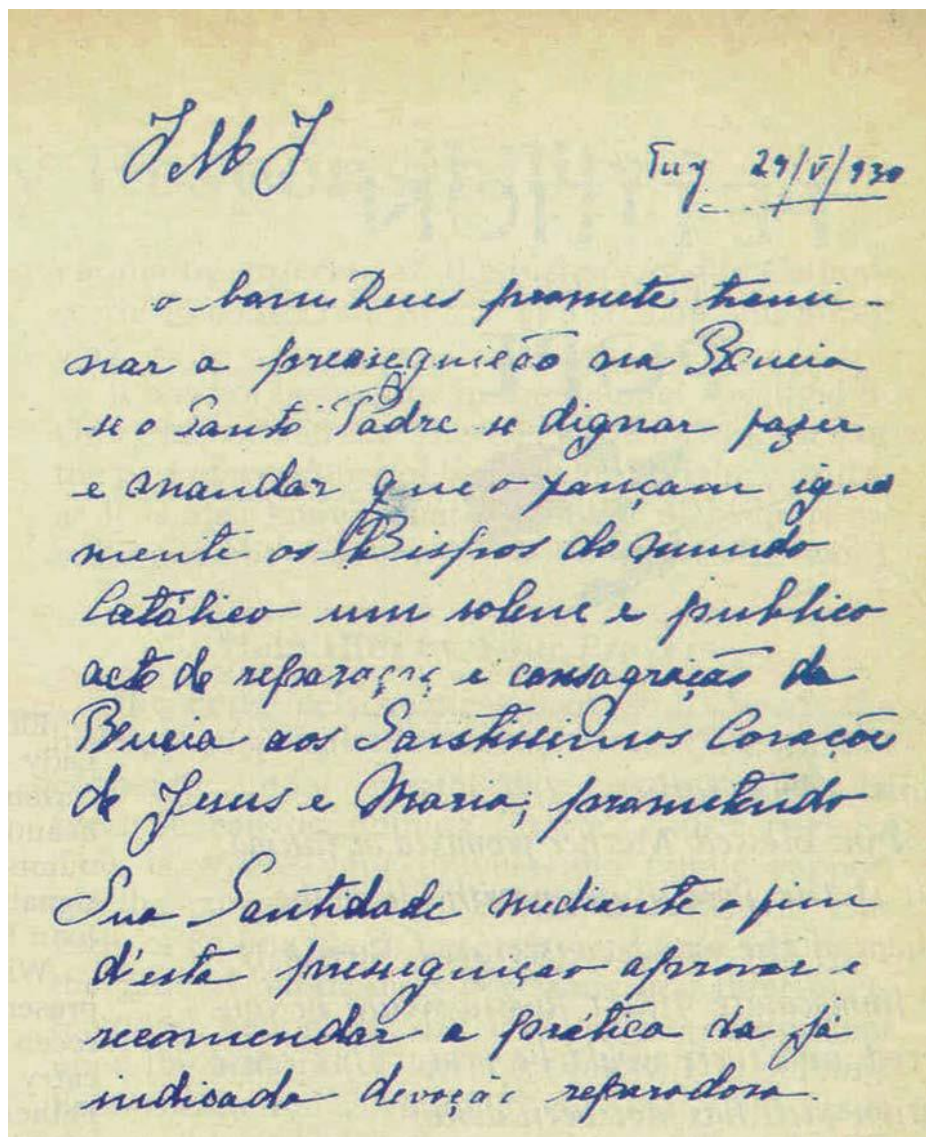 J M J
Tuy 29/V/930
o bom Deus promete tremi-
nar a preseguição na Rucia
se o Santo Padre se dignar fazer
e mandar que o fançam igua
mente os Bispos do mundo
Católico um solene e publico
acto de reparação e consagração da
Rucia aos Santissimos Coraçõe
de Jesus e Maria, prometendo
Sua Santidade mediante o fim
d'esta preseguição aprovar e
recomendar a prática da já
indicada devoção reparadora.